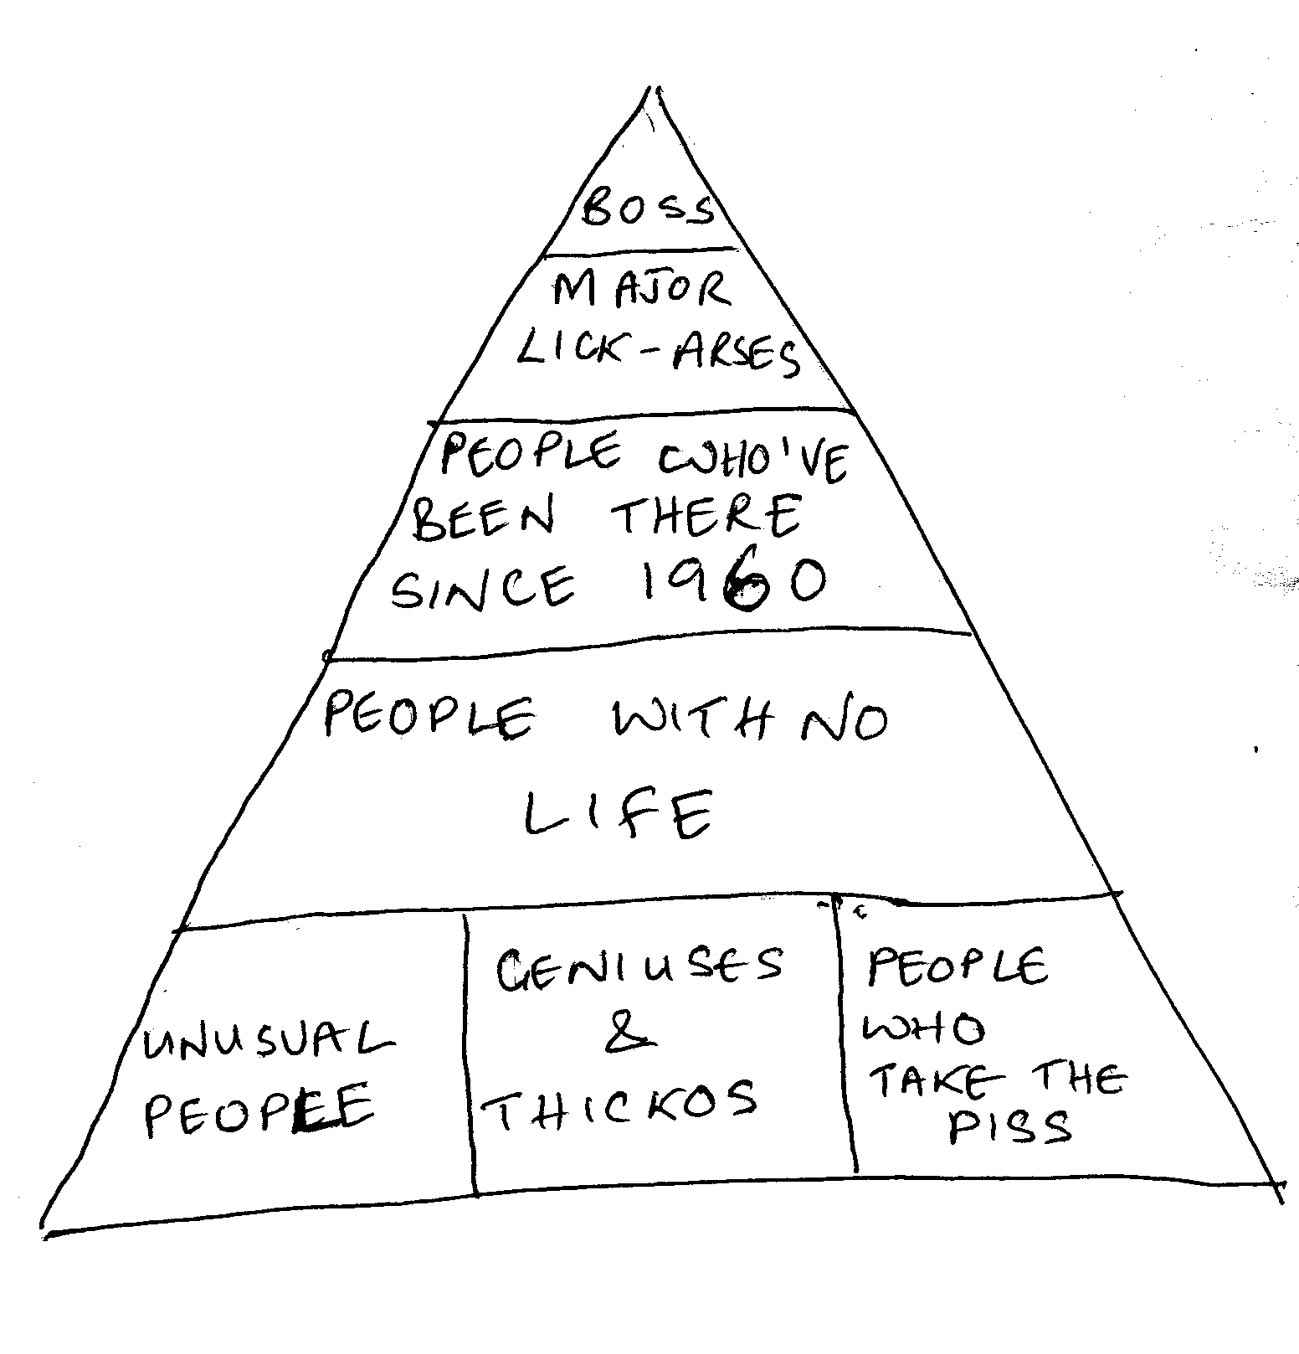 BOSS
MAJOR
LICK-ARSES
PEOPLE WHO'VE
BEEN THERE
SINCE 1960
PEOPLE WITH NO
LIFE
UNUSUAL
PEOPLE
GENIUSES
&
THICKOS
PEOPLE
WHO
TAKE THE
PISS